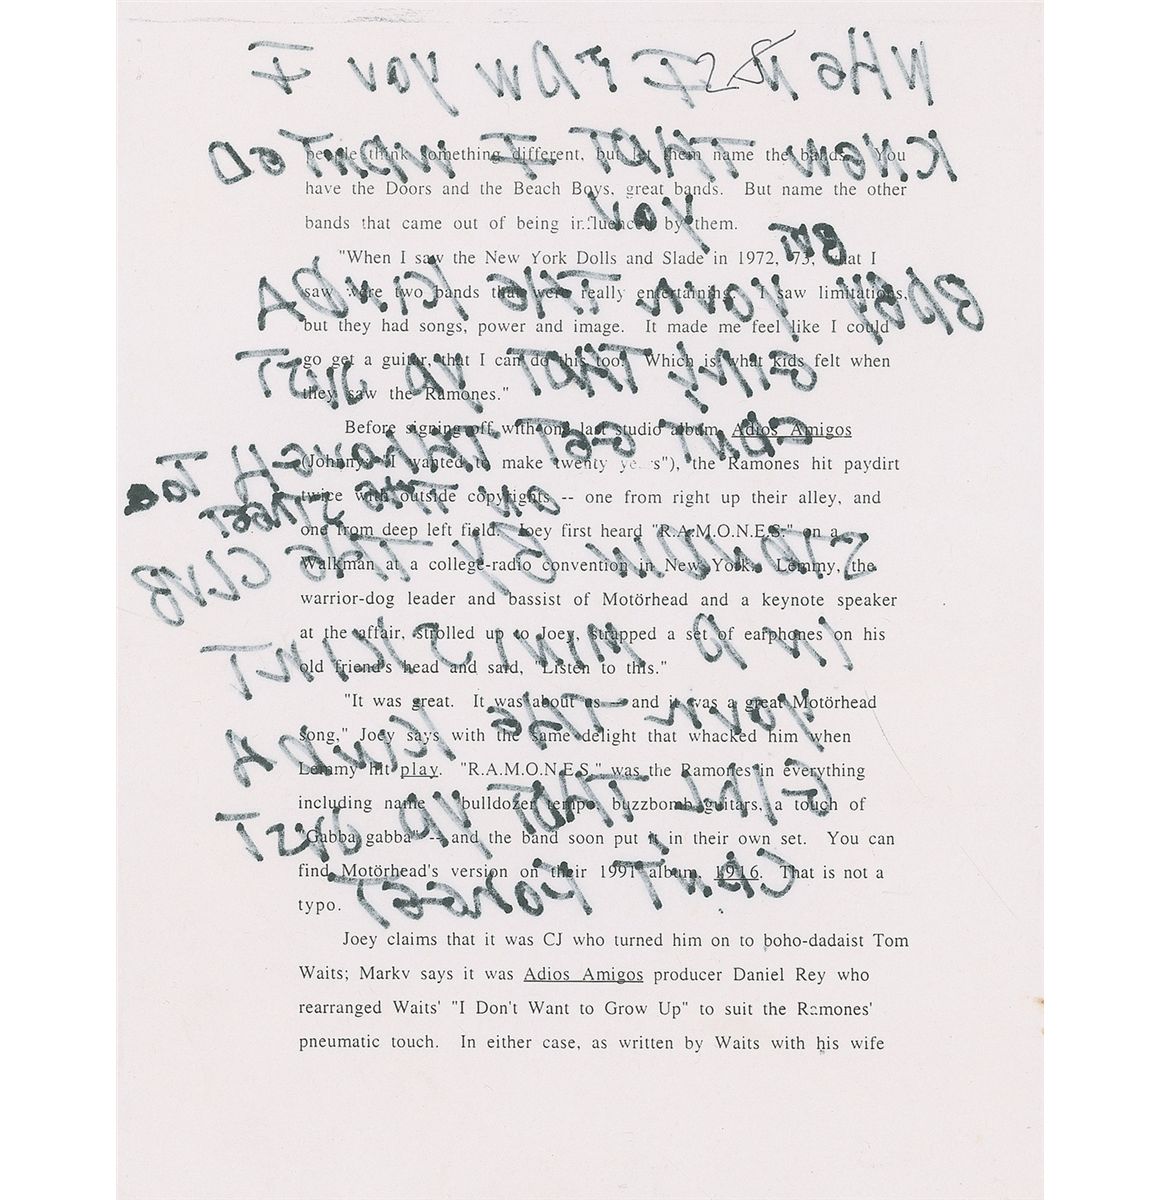 28
WHEN I SAW YOU I
KNEW THAT I WANTED
YOU
BUT
BABY YOUR THE KINDA
GIRL THAT YA JUST
CANT GET THROUGH TO
ON THE STREET
STANDIN BY THE CLUB
IN A MINI SKIRT
YOUR THE KINDA
GIRL THAT YA JUST
CANT FORGET
people think something different, but let them name the bands. You
have the Doors and the Beach Boys, great bands. But name the other
bands that came out of being influenced by them.
"When I saw the New York Dolls and Slade in 1972, '73, what I
saw were two bands that were really entertaining. I saw limitations,
but they had songs, power and image. It made me feel like I could
go get a guitar, that I can do this too. Which is what kids felt when
they saw the Ramones."
Before signing off with one last studio album, Adios Amigos
(Johnny: "I wanted to make twenty years"), the Ramones hit paydirt
twice with outside copyrights -- one from right up their alley, and
one from deep left field. Joey first heard "R.A.M.O.N.E.S." on a
Walkman at a college-radio convention in New York. Lemmy, the
warrior-dog leader and bassist of Motörhead and a keynote speaker
at the affair, strolled up to Joey, strapped a set of earphones on his
old friend's head and said, "Listen to this."
"It was great. It was about us -- and it was a great Motörhead
song," Joey says with the same delight that whacked him when
Lemmy hit play. "R.A.M.O.N.E.S." was the Ramones in everything
including name -- bulldozer tempo, buzzbomb guitars, a touch of
"Gabba gabba" -- and the band soon put it in their own set. You can
find Motörhead's version on their 1991 album, 1916. That is not a
typo.
Joey claims that it was CJ who turned him on to boho-dadaist Tom
Waits; Marky says it was Adios Amigos producer Daniel Rey who
rearranged Waits' "I Don't Want to Grow Up" to suit the Ramones'
pneumatic touch. In either case, as written by Waits with his wife